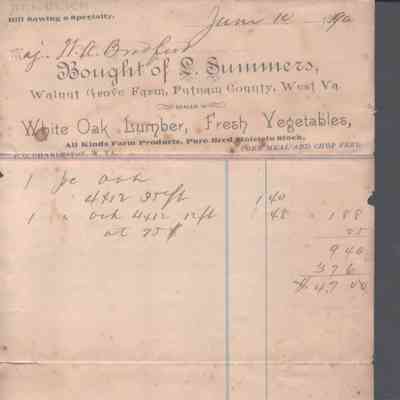 Bill Sawing a Specialty.
June 10 1890
Maj. W. A. Bradford
Bought of L. Summers,
Walnut Grove Farm, Putnam County, West Va
DEALER IN
White Oak Lumber, Fresh Vegetables,
All Kinds Farm Products, Pure Bred Stock.
P. O. CHARLESTON, W. VA. CORN MEAL AND CHOP FEED.
1 pc Oak
4x12 35 ft 140
1 " Oak 4x12 12 ft 48 188
at 25 ¢ 25
940
376
$ 47 00